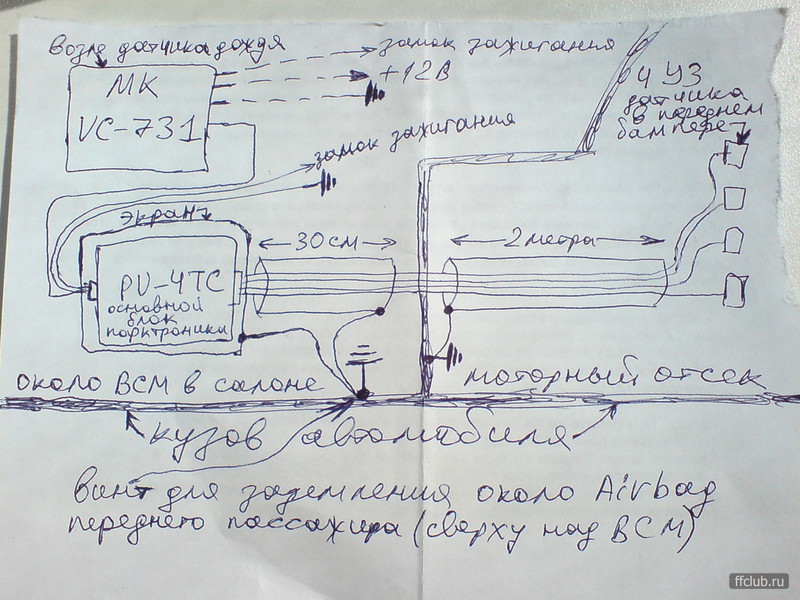 возле датчика дождя
МК
VC-731
замок зажигания
+12В
замок зажигания
4 УЗ
датчика
в переднем
бампере
экран
30 см
2 метра
PU-4TC
основной
блок
парктроники
около ВСМ в салоне
моторный отсек
кузов автомобиля
винт для заземления около Airbag
переднего пассажира (сверху над ВСМ)
ffclub.ru